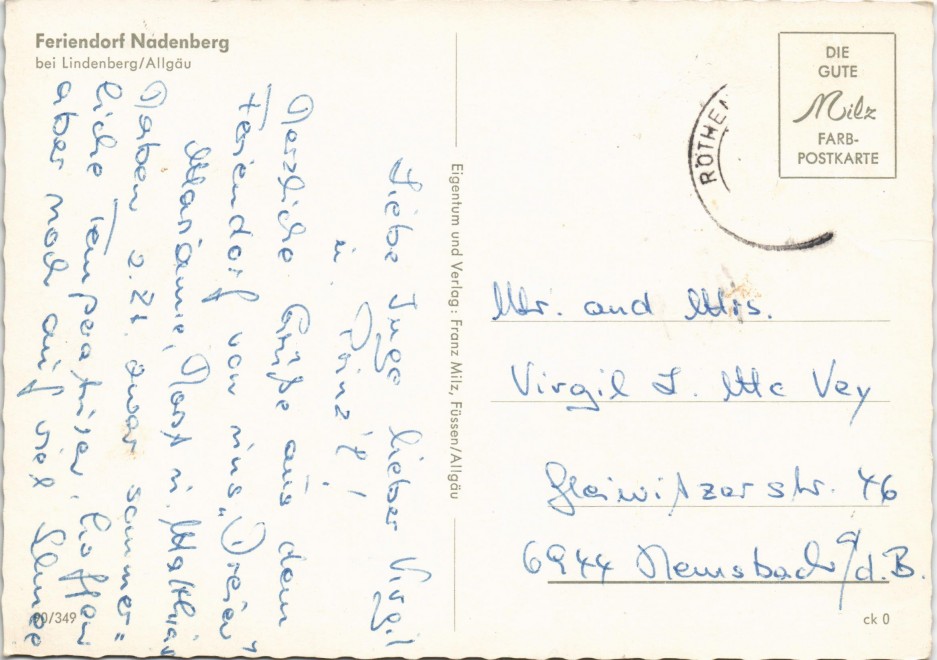 Feriendorf Nadenberg
bei Lindenberg/Allgäu
Liebe Inge lieber Virgil
u. Prinz'l!
Herzliche Grüße aus dem
Feriendorf von uns „Dreien"
Marianne, Horst u. Matthias
Haben z. Zt. zwar sommer=
liche Temperaturen, hoffen
aber noch auf viel Schnee
90/349
Eigentum und Verlag: Franz Milz, Füssen/Allgäu
DIE
GUTE
Milz
FARB-
POSTKARTE
RÖTHEN
Mr. and Mrs.
Virgil J. Mc Vey
Gleiwitzerstr. 46
6944 Hemsbach a/d.B.
ck 0